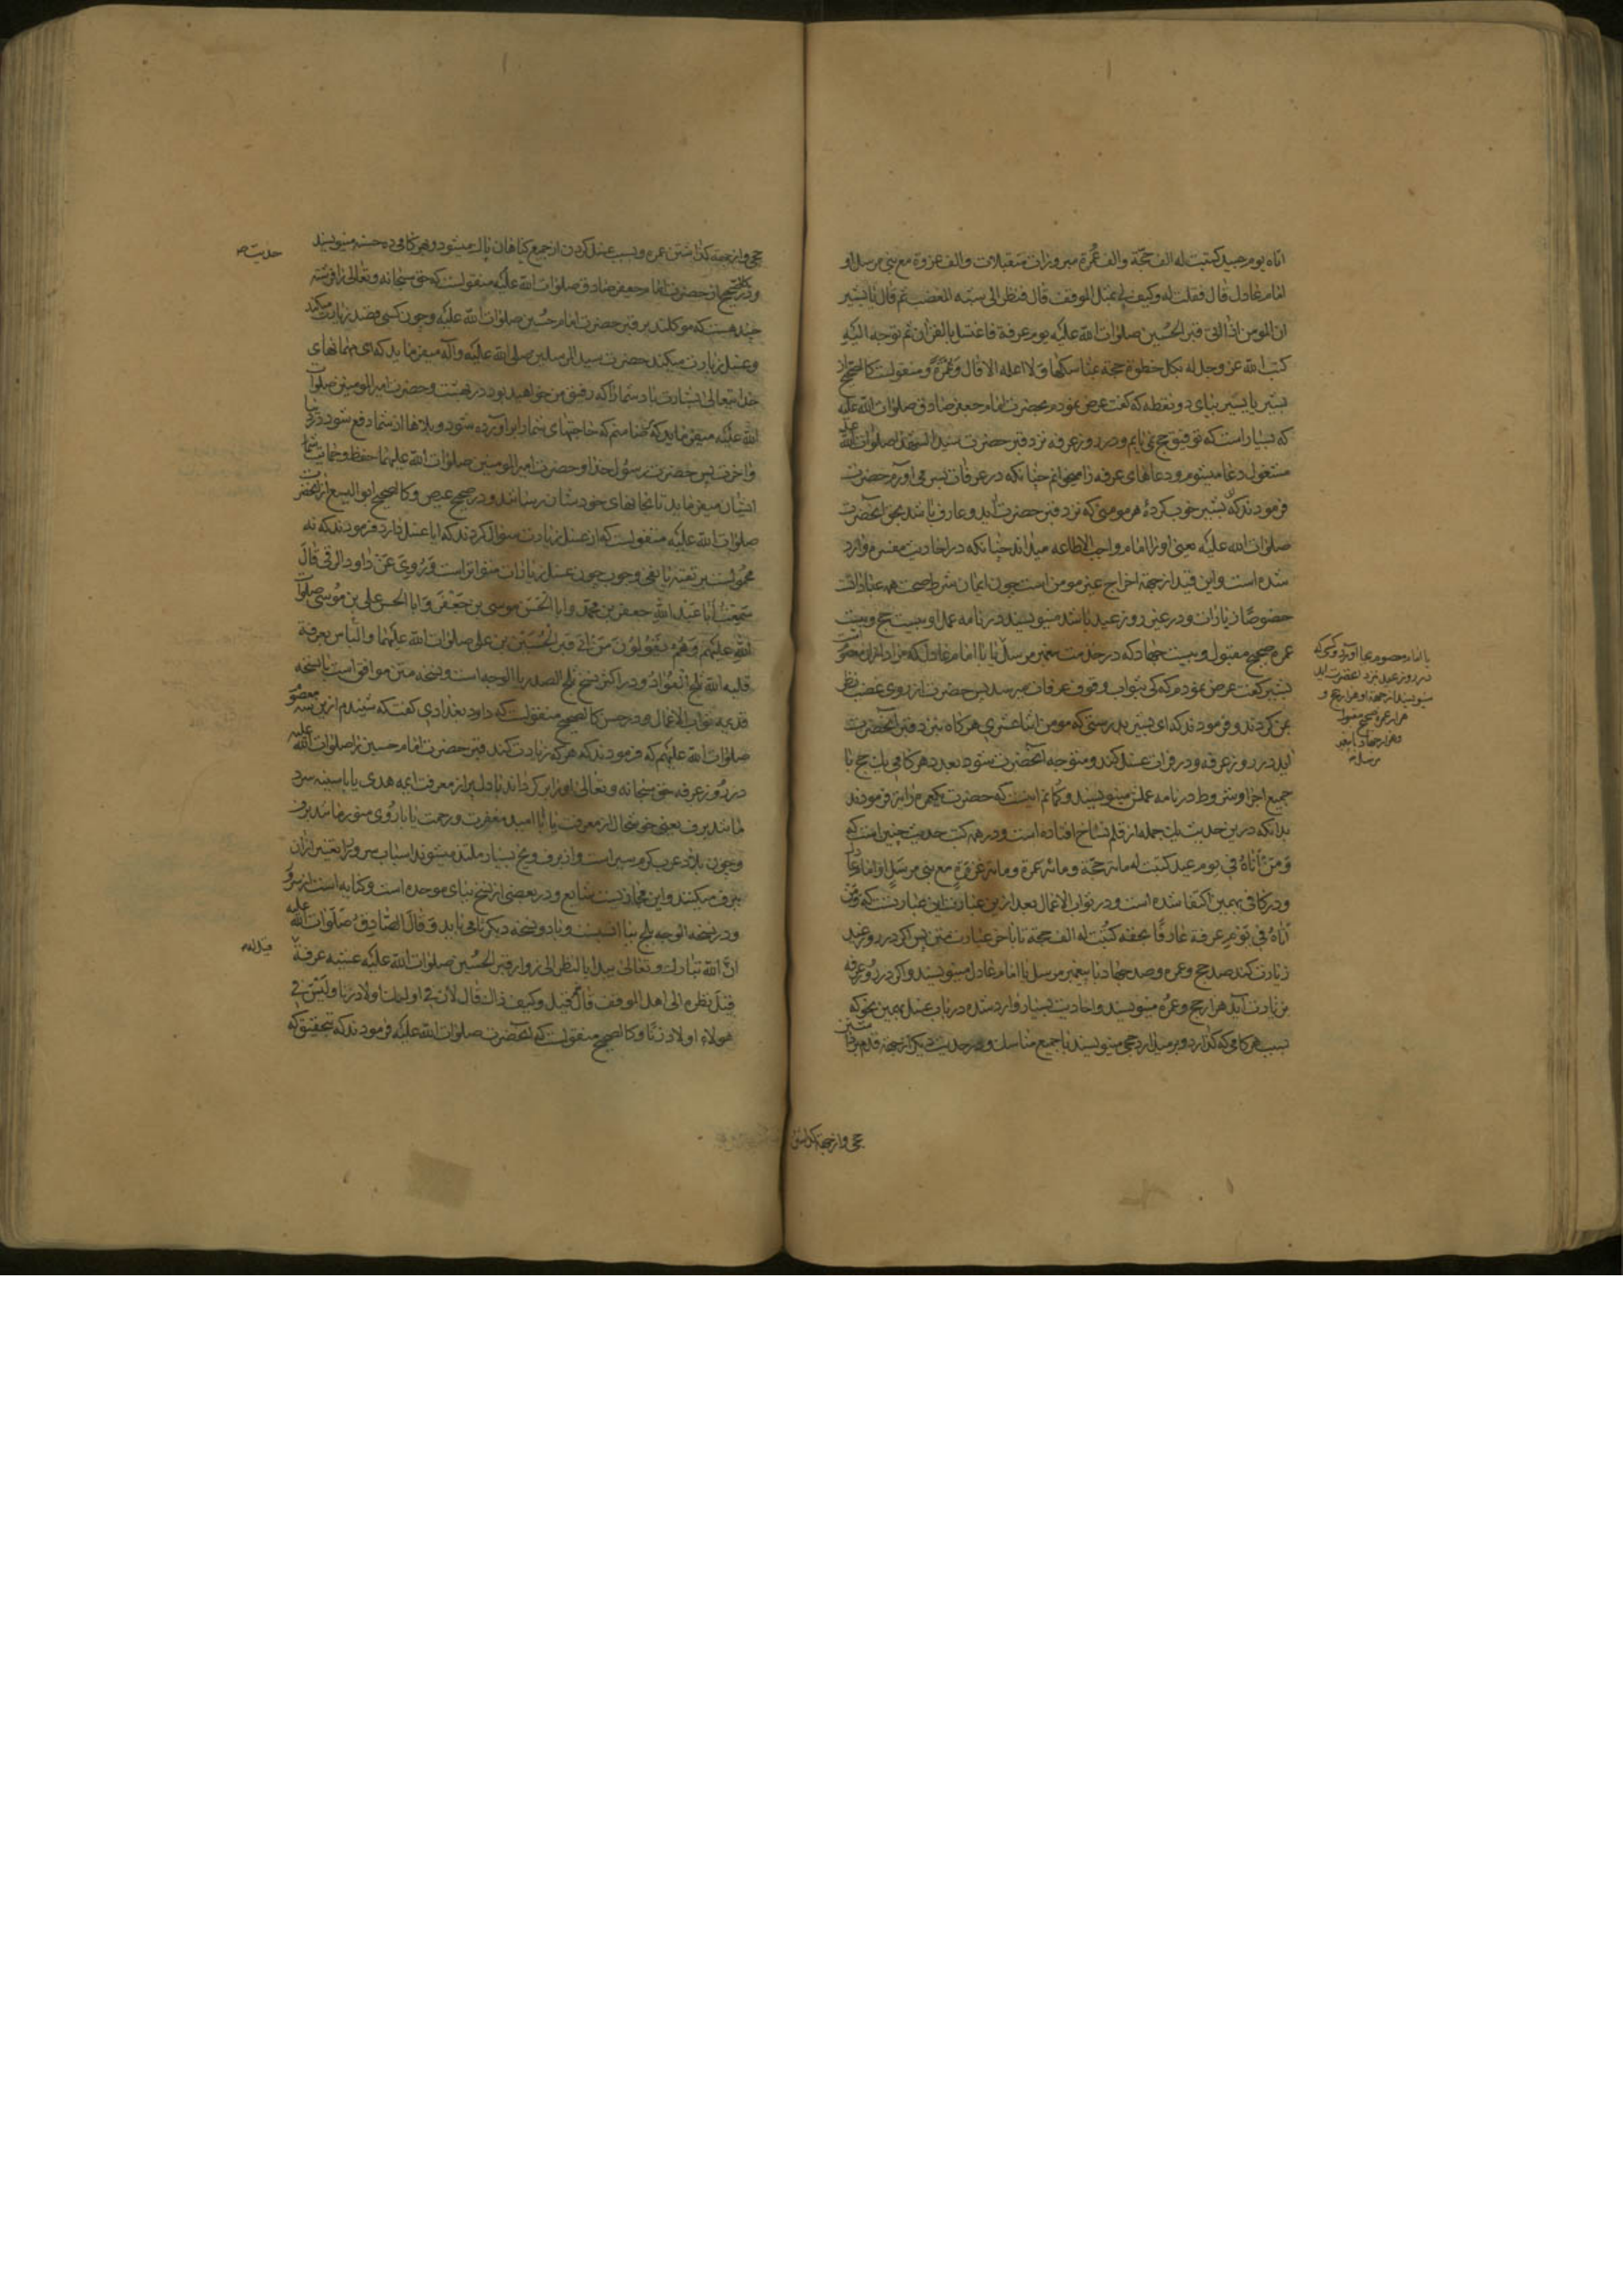 اتاه يوم عيد كتبت له الف حجّة والف عُمرة مبرورات متقبلات والف غزوة مع نبي مرسل او
امام عادل قال فقلت له وكيف لي بمثل الموقف قال فنظر الى شبه المغضب ثم قال يا بشير
ان المومن اذا اتى قبر الحُسين صلوات الله عليه يوم عرفة فاغتسل بالفرات ثم توجه اليه
كتب الله عز وجل له بكل خطوة حجة بمناسكها ولا اعلمه الا قال وعُمرةً و منقولست كالصحيح از
بشير يا يسير بياى دو نقطه كه گفت عرض نمودم بحضرت امام جعفر صادق صلوات الله عليه
كه بسيار است كه توفيق حج نمى يابم ودر روز عرفه نزد قبر حضرت سيد الشهدا صلوات الله عليه
مشغول دعا ميشوم و دعاهاى عرفه را ميخوانم چنانكه در عرفات بسر مى آورم حضرت
فرمودند كه بشير خوب كرده هر مومنى كه نزد قبر حضرت آيد و عارف باشد بحق آنحضرت
صلوات الله عليه يعنى او را امام واجب الاطاعه ميداند چنانكه در احاديث مفسر وارد
شده است و اين قيد از جهة اخراج غير مومن است چون ايمان شرط صحت همه عباداتست
خصوصًا زيارات و در غير روز عيد باشد مينويسند در نامه عمل او بيست حج و بيست
عمره صحيح مقبول و بيست جهاد كه در خدمت پيغمبر مرسل يا با امام عادل كه مراد از ان معصومست
بشير گفت عرض نمودم كه كى بثواب وقوف عرفات ميرسد پس حضرت از روى غضب نظر
بمن كردند و فرمودند كه اى بشير بدرستى كه مومن اثنا عشرى هرگاه بنزد قبر آنحضرت
آيد در روز عرفه و در فرات غسل كند و متوجه آنحضرت شود بعدد هر گامى يك حج با
جميع اجزا و شروط در نامه عملش مينويسند و گمانم اينست كه حضرت عمره را نيز فرمودند
بدانكه درين حديث يك جمله از قلم نساخ افتاده است و در همه كتب حديث چنين است كه
وَمَنْ اَتاهُ في يوم عيد كتبت له مائة حجّة و مائة عمرة و مائة غزوةٍ مع نبي مرسَلٍ او امام عادل
و در كافى بهمين اكتفا شده است و در ثواب الاعمال بعد ازين عبارت اين عبارتست كه ومَن
اَتاهُ في يَوْمِ عرفة عارفًا بحقه كُتِبَت له الف حجة تا باخر عبارت متن پس اگر در روز عيد
زيارت كند صد حج و عمره و صد جهاد با پيغمبر مرسل يا امام عادل مينويسند و اگر در روز عرفه
بزيارت آيد هزار حج و عمره مينويسند و احاديث بسيار وارد شده در باب غسل بهمين نحو كه
بسبب هر گامى كه گذارد و بر ميدارد حجى مينويسند با جميع مناسك و در حديث ديگر از جهة قدم برداشتن
يا امام معصوم بجا آورد و كسى كه
در روز عيد نزد آنحضرت آيد
مينويسند از جهة او هزار حج و
هزار عمره صحيح مقبول
و هزار جهاد با پيغمبر
مرسل
حجى و از جهة گذاشتن
حجى و از جهة گذاشتن عمره و بسبب غسل كردن از جميع گناهان پاك ميشود و بهر گامى ده حسنه مينويسند
و در كالصحيح از حضرت امام جعفر صادق صلوات الله عليه منقولست كه حق سبحانه و تعالى را فرشته
چند هست كه موكلند بر قبر حضرت امام حُسين صلوات الله عليه و چون كسى قصد زيارت ميكند
و غسل زيارت ميكند حضرت سيد المرسلين صلى الله عليه وآله ميفرمايد كه اى مهمانهاى
خدا يتعالى بشارت باد شما را كه رفيق من خواهيد بود در بهشت و حضرت امير المومنين صلوات
الله عليه ميفرمايد كه ضامنم كه حاجتهاى شما را بر آورده شود و بلاها از شما دفع شود در دنيا
و اخرت پس حضرت رسُول خدا و حضرت امير المومنين صلوات الله عليهما حفظ و حمايت شما
ايشان ميفرمايد تا بخانهاى خود شان رسانند و در صحيح عيص و كالصحيح ابو اليسع از آنحضرت
صلوات الله عليه منقولست كه از غسل زيارت سوال كردند كه ايا غسل دارد فرمودند كه نه
محمُولست بر تقيه يا نفى وجوب چون غسل زيارات متواتر است وَ رُوِيَ عَنْ داود الرقى قالَ
سَمِعْتُ اَبا عَبْد اللهِ جعفر بن محمّد وابا الحَسَن موسى بن جَعْفَر وَ ابا الحسن على بن مُوسى صلوات
الله عليهم وَهُم يَقُولُونَ مَن اَتى قبر الحُسَيْن بن على صلوات الله عليهما والنّاس بعرفة
قلبه الله ثلج الفُؤاد و در اكثر نسخ ثلج الصدر يا الوجه است و نسخه متن موافق است با نسخه
قديمه ثواب الاعمال و در حسن كالصحيح منقولست كه داود بغدادى گفت كه شنيدم از ين سه معصوم
صلوات الله عليهم كه فرمودند كه هر كه زيارت كند قبر حضرت امام حسين را صلوات الله عليه
در روز عرفه حق سبحانه و تعالى او را بر گرداند با دل پر از معرفت ائمه هدى يا با سينه سرد
مانند برف يعنى خوشحال از معرفت يا با اميد مغفرت و رحمت يا با روى منور مانند برف
و چون بلاد عرب گرم سير است و از برف و يخ بسيار ملتذ ميشوند اسباب سرور را تعبير از ان
ببرف ميكنند و اين مجاز يست شايع و در بعضى از نسخ بباى موحده است و كنايه است از سرور
و در نسخه الوجه بلج ببا انسبست و با دو نسخه ديگر با مى بايد وَقالَ الصّادِق صَلَوات الله عليه
انَّ الله تبارك و تعالى يبدا بالنظر الى زوار قبر الحُسين صلوات الله عليه عشية عرفة
قبل نظره الى اهل الموقف قالَ قيل وكيف ذاك قال لان في اولئك اولاد زنا ولَيْسَ في
هولاء اولاد زنًا و كالصحيح منقولست كه آنحضرت صلوات الله عليه فرمودند كه بتحقيق كه